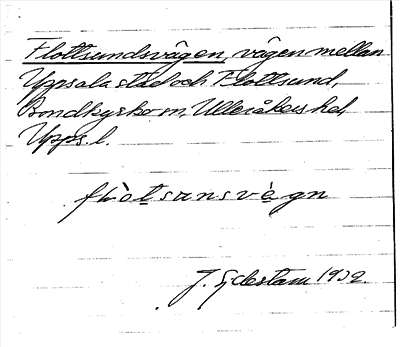 Flottsundsvägen, vägen mellan
Uppsala stad och Flottsund,
Bondkyrko sn, Ulleråkers hd,
Upps. l.
flòtsunsvàgn
J. Sjelestam 1932.